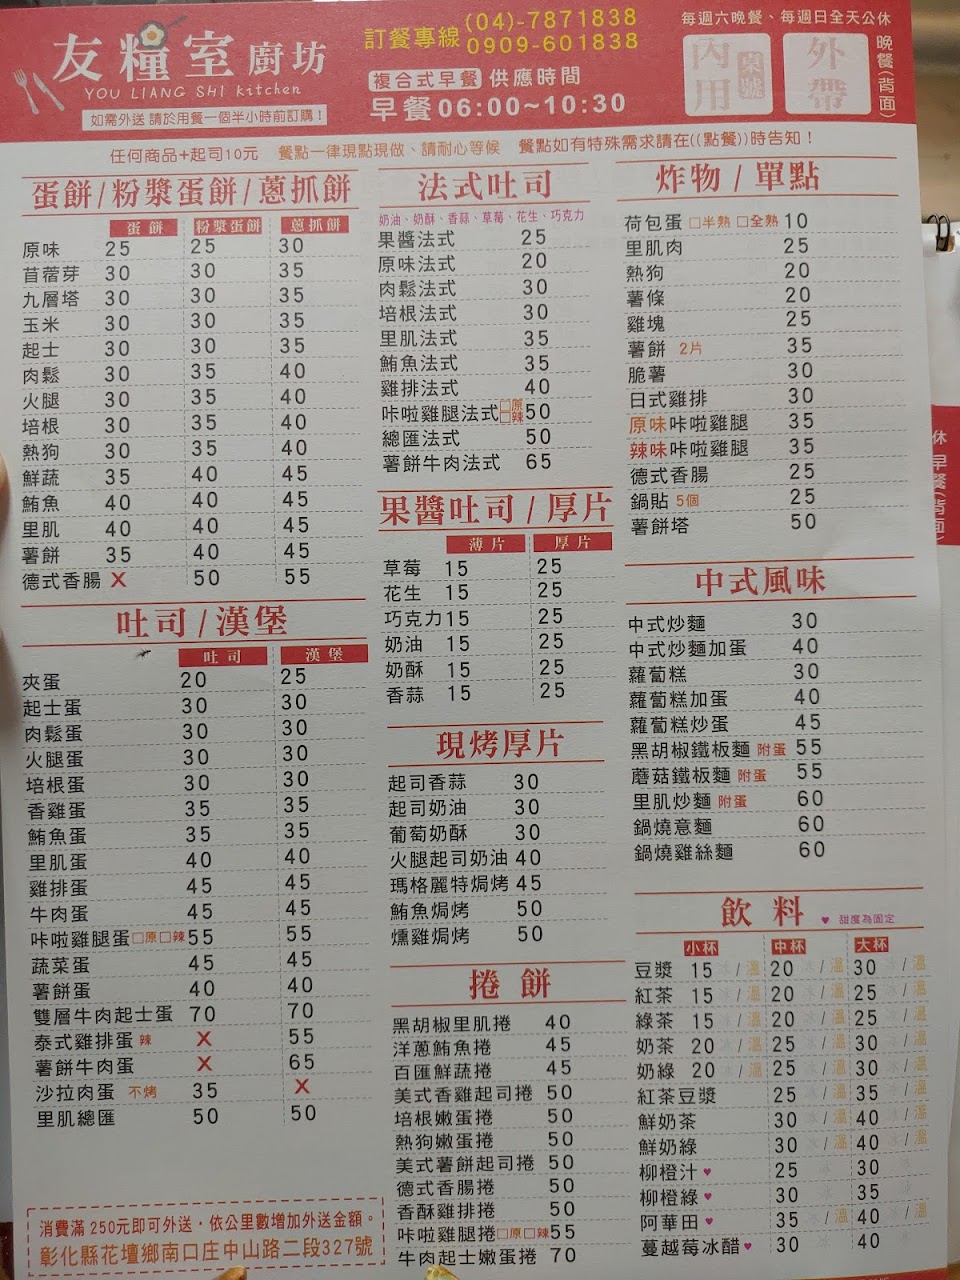 友糧室廚坊
YOU LIANG SHI kitchen
如需外送 請於用餐一個半小時前訂購！
訂餐專線 (04)-7871838
0909-601838
複合式早餐 供應時間
早餐 06:00~10:30
每週六晚餐、每週日全天公休
內用 桌號
外帶
晚餐(背面)
任何商品+起司10元 餐點一律現點現做、請耐心等候 餐點如有特殊需求請在((點餐))時告知！
蛋餅/粉漿蛋餅/蔥抓餅
蛋餅 粉漿蛋餅 蔥抓餅
原味 25 25 30
苜蓿芽 30 30 35
九層塔 30 30 35
玉米 30 30 35
起士 30 30 35
肉鬆 30 35 40
火腿 30 35 40
培根 30 35 40
熱狗 30 35 40
鮮蔬 35 40 45
鮪魚 40 40 45
里肌 40 40 45
薯餅 35 40 45
德式香腸 X 50 55
吐司/漢堡
吐司 漢堡
夾蛋 20 25
起士蛋 30 30
肉鬆蛋 30 30
火腿蛋 30 30
培根蛋 30 30
香雞蛋 35 35
鮪魚蛋 35 35
里肌蛋 40 40
雞排蛋 45 45
牛肉蛋 45 45
咔啦雞腿蛋□原□辣 55 55
蔬菜蛋 45 45
薯餅蛋 40 40
雙層牛肉起士蛋 70 70
泰式雞排蛋 辣 X 55
薯餅牛肉蛋 X 65
沙拉肉蛋 不烤 35 X
里肌總匯 50 50
消費滿250元即可外送，依公里數增加外送金額。
彰化縣花壇鄉南口庄中山路二段327號
法式吐司
奶油、奶酥、香蒜、草莓、花生、巧克力
果醬法式 25
原味法式 20
肉鬆法式 30
培根法式 30
里肌法式 35
鮪魚法式 35
雞排法式 40
咔啦雞腿法式□原□辣 50
總匯法式 50
薯餅牛肉法式 65
果醬吐司/厚片
薄片 厚片
草莓 15 25
花生 15 25
巧克力 15 25
奶油 15 25
奶酥 15 25
香蒜 15 25
現烤厚片
起司香蒜 30
起司奶油 30
葡萄奶酥 30
火腿起司奶油 40
瑪格麗特焗烤 45
鮪魚焗烤 50
燻雞焗烤 50
捲餅
黑胡椒里肌捲 40
洋蔥鮪魚捲 45
百匯鮮蔬捲 45
美式香雞起司捲 50
培根嫩蛋捲 50
熱狗嫩蛋捲 50
美式薯餅起司捲 50
德式香腸捲 50
香酥雞排捲 50
咔啦雞腿捲□原□辣 55
牛肉起士嫩蛋捲 70
炸物/單點
荷包蛋 □半熟 □全熟 10
里肌肉 25
熱狗 20
薯條 20
雞塊 25
薯餅 2片 35
脆薯 30
日式雞排 30
原味咔啦雞腿 35
辣味咔啦雞腿 35
德式香腸 25
鍋貼 5個 25
薯餅塔 50
中式風味
中式炒麵 30
中式炒麵加蛋 40
蘿蔔糕 30
蘿蔔糕加蛋 40
蘿蔔糕炒蛋 45
黑胡椒鐵板麵 附蛋 55
蘑菇鐵板麵 附蛋 55
里肌炒麵 附蛋 60
鍋燒意麵 60
鍋燒雞絲麵 60
飲料 ♥ 甜度為固定
小杯 中杯 大杯
豆漿 15 冰/溫 20 冰/溫 30 冰/溫
紅茶 15 冰/溫 20 冰/溫 25 冰/溫
綠茶 15 冰/溫 20 冰/溫 25 冰/溫
奶茶 20 冰/溫 25 冰/溫 30 冰/溫
奶綠 20 冰/溫 25 冰/溫 30 冰/溫
紅茶豆漿 25 冰/溫 35 冰/溫
鮮奶茶 30 冰/溫 40 冰/溫
鮮奶綠 30 冰/溫 40 冰/溫
柳橙汁♥ 25 冰 30 冰
柳橙綠♥ 30 冰 35 冰
阿華田♥ 35 冰/溫 40 冰/溫
蔓越莓冰醋♥ 30 冰 40 冰
休 早餐(背面)